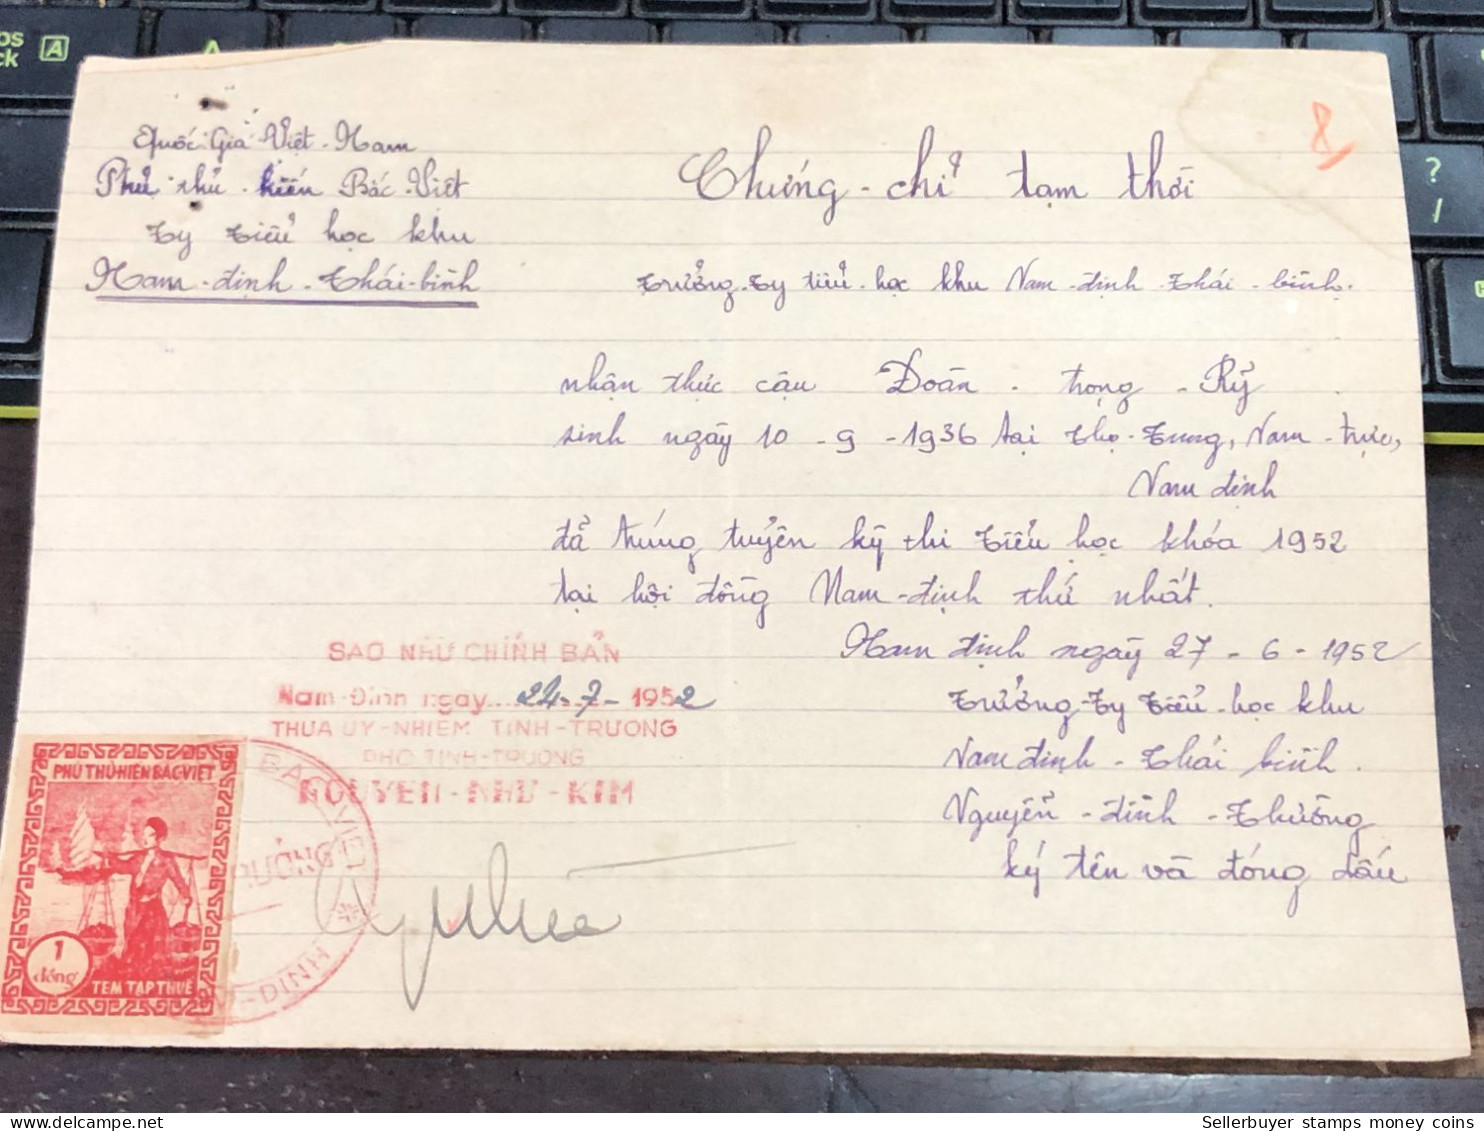 Quốc Gia Việt-Nam
Phủ thủ hiến Bắc Việt
Ty Tiểu học khu
Nam-định-Thái-bình
8
Chứng-chỉ tạm thời
Trưởng-Ty tiểu-học khu Nam-định-Thái-bình.
nhận thực cậu Đoàn-trọng-Kỷ
sinh ngày 10-9-1936 tại Thọ-Trung, Nam-trực,
Nam định
đã trúng tuyển kỳ thi Tiểu học khóa 1952
tại hội đồng Nam-định thứ nhất.
Nam định ngày 27-6-1952
Trưởng-Ty Tiểu-học khu
Nam định-Thái bình.
Nguyễn-đình-Thường
ký tên và đóng dấu
SAO NHƯ CHÍNH BẢN
Nam-Định ngày 24-7-1952
THỪA ỦY-NHIỆM TỈNH-TRƯỞNG
PHÓ TỈNH-TRƯỞNG
NGUYỄN-NHƯ-KIM
PHỦ THỦ HIẾN BẮC VIỆT
1
đồng
TEM TẠP THUẾ
BẮC VIỆT
TRƯỞNG
-ĐỊNH
A
?
/
Sellerbuyer stamps money coins